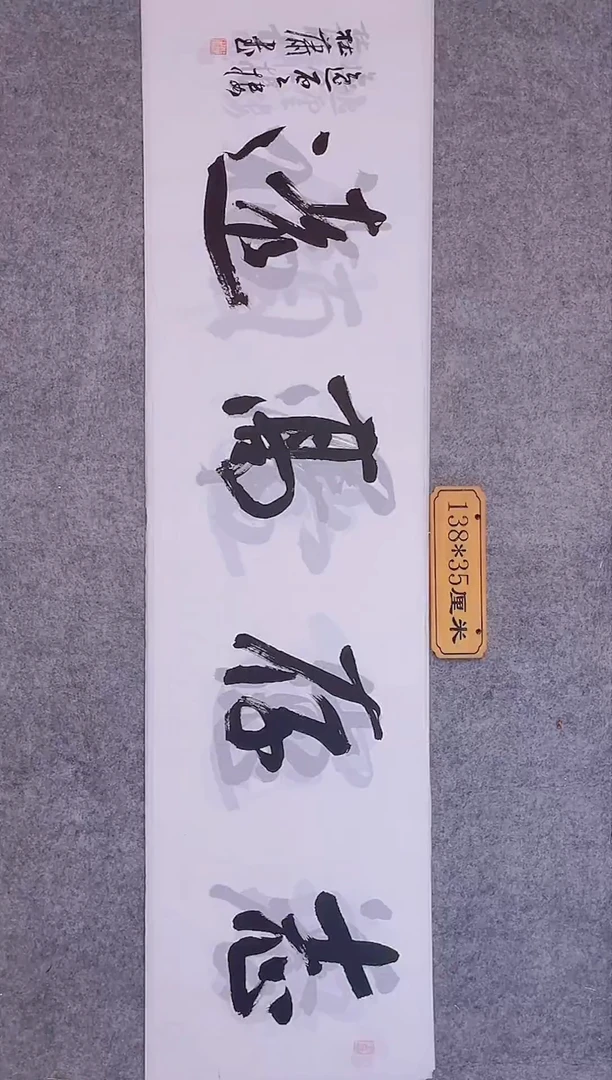 志存高遠
138*35厘米